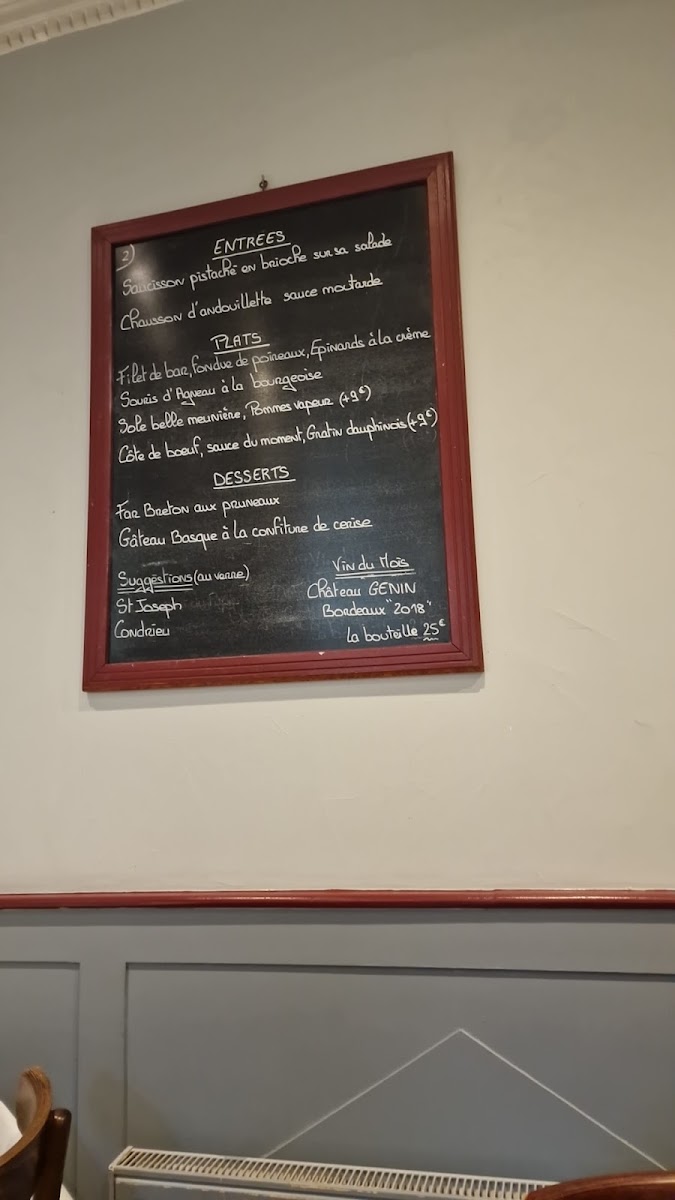 2)
ENTRÉES
Saucisson pistaché en brioche sur sa salade
Chausson d'andouillette sauce moutarde
PLATS
Filet de bar, fondue de poireaux, Epinards à la crème
Souris d'Agneau à la bourgeoise
Sole belle meunière, Pommes vapeur (+9€)
Côte de boeuf, sauce du moment, Gratin dauphinois (+9€)
DESSERTS
Far Breton aux pruneaux
Gâteau Basque à la confiture de cerise
Suggestions (au verre)
St Joseph
Condrieu
Vin du Mois
Château GENIN
Bordeaux "2018"
la bouteille 25€